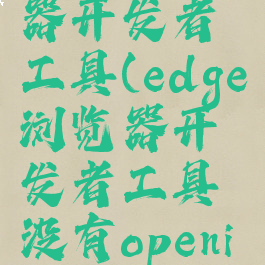 器开发者
工具(edge
浏览器开
发者工具
没有openi